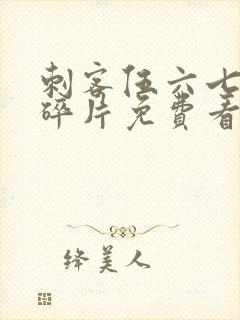 刺客伍六七
碎片免费看
绛美人